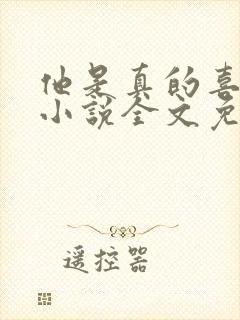 他是真的喜
小说全文免
遥控器